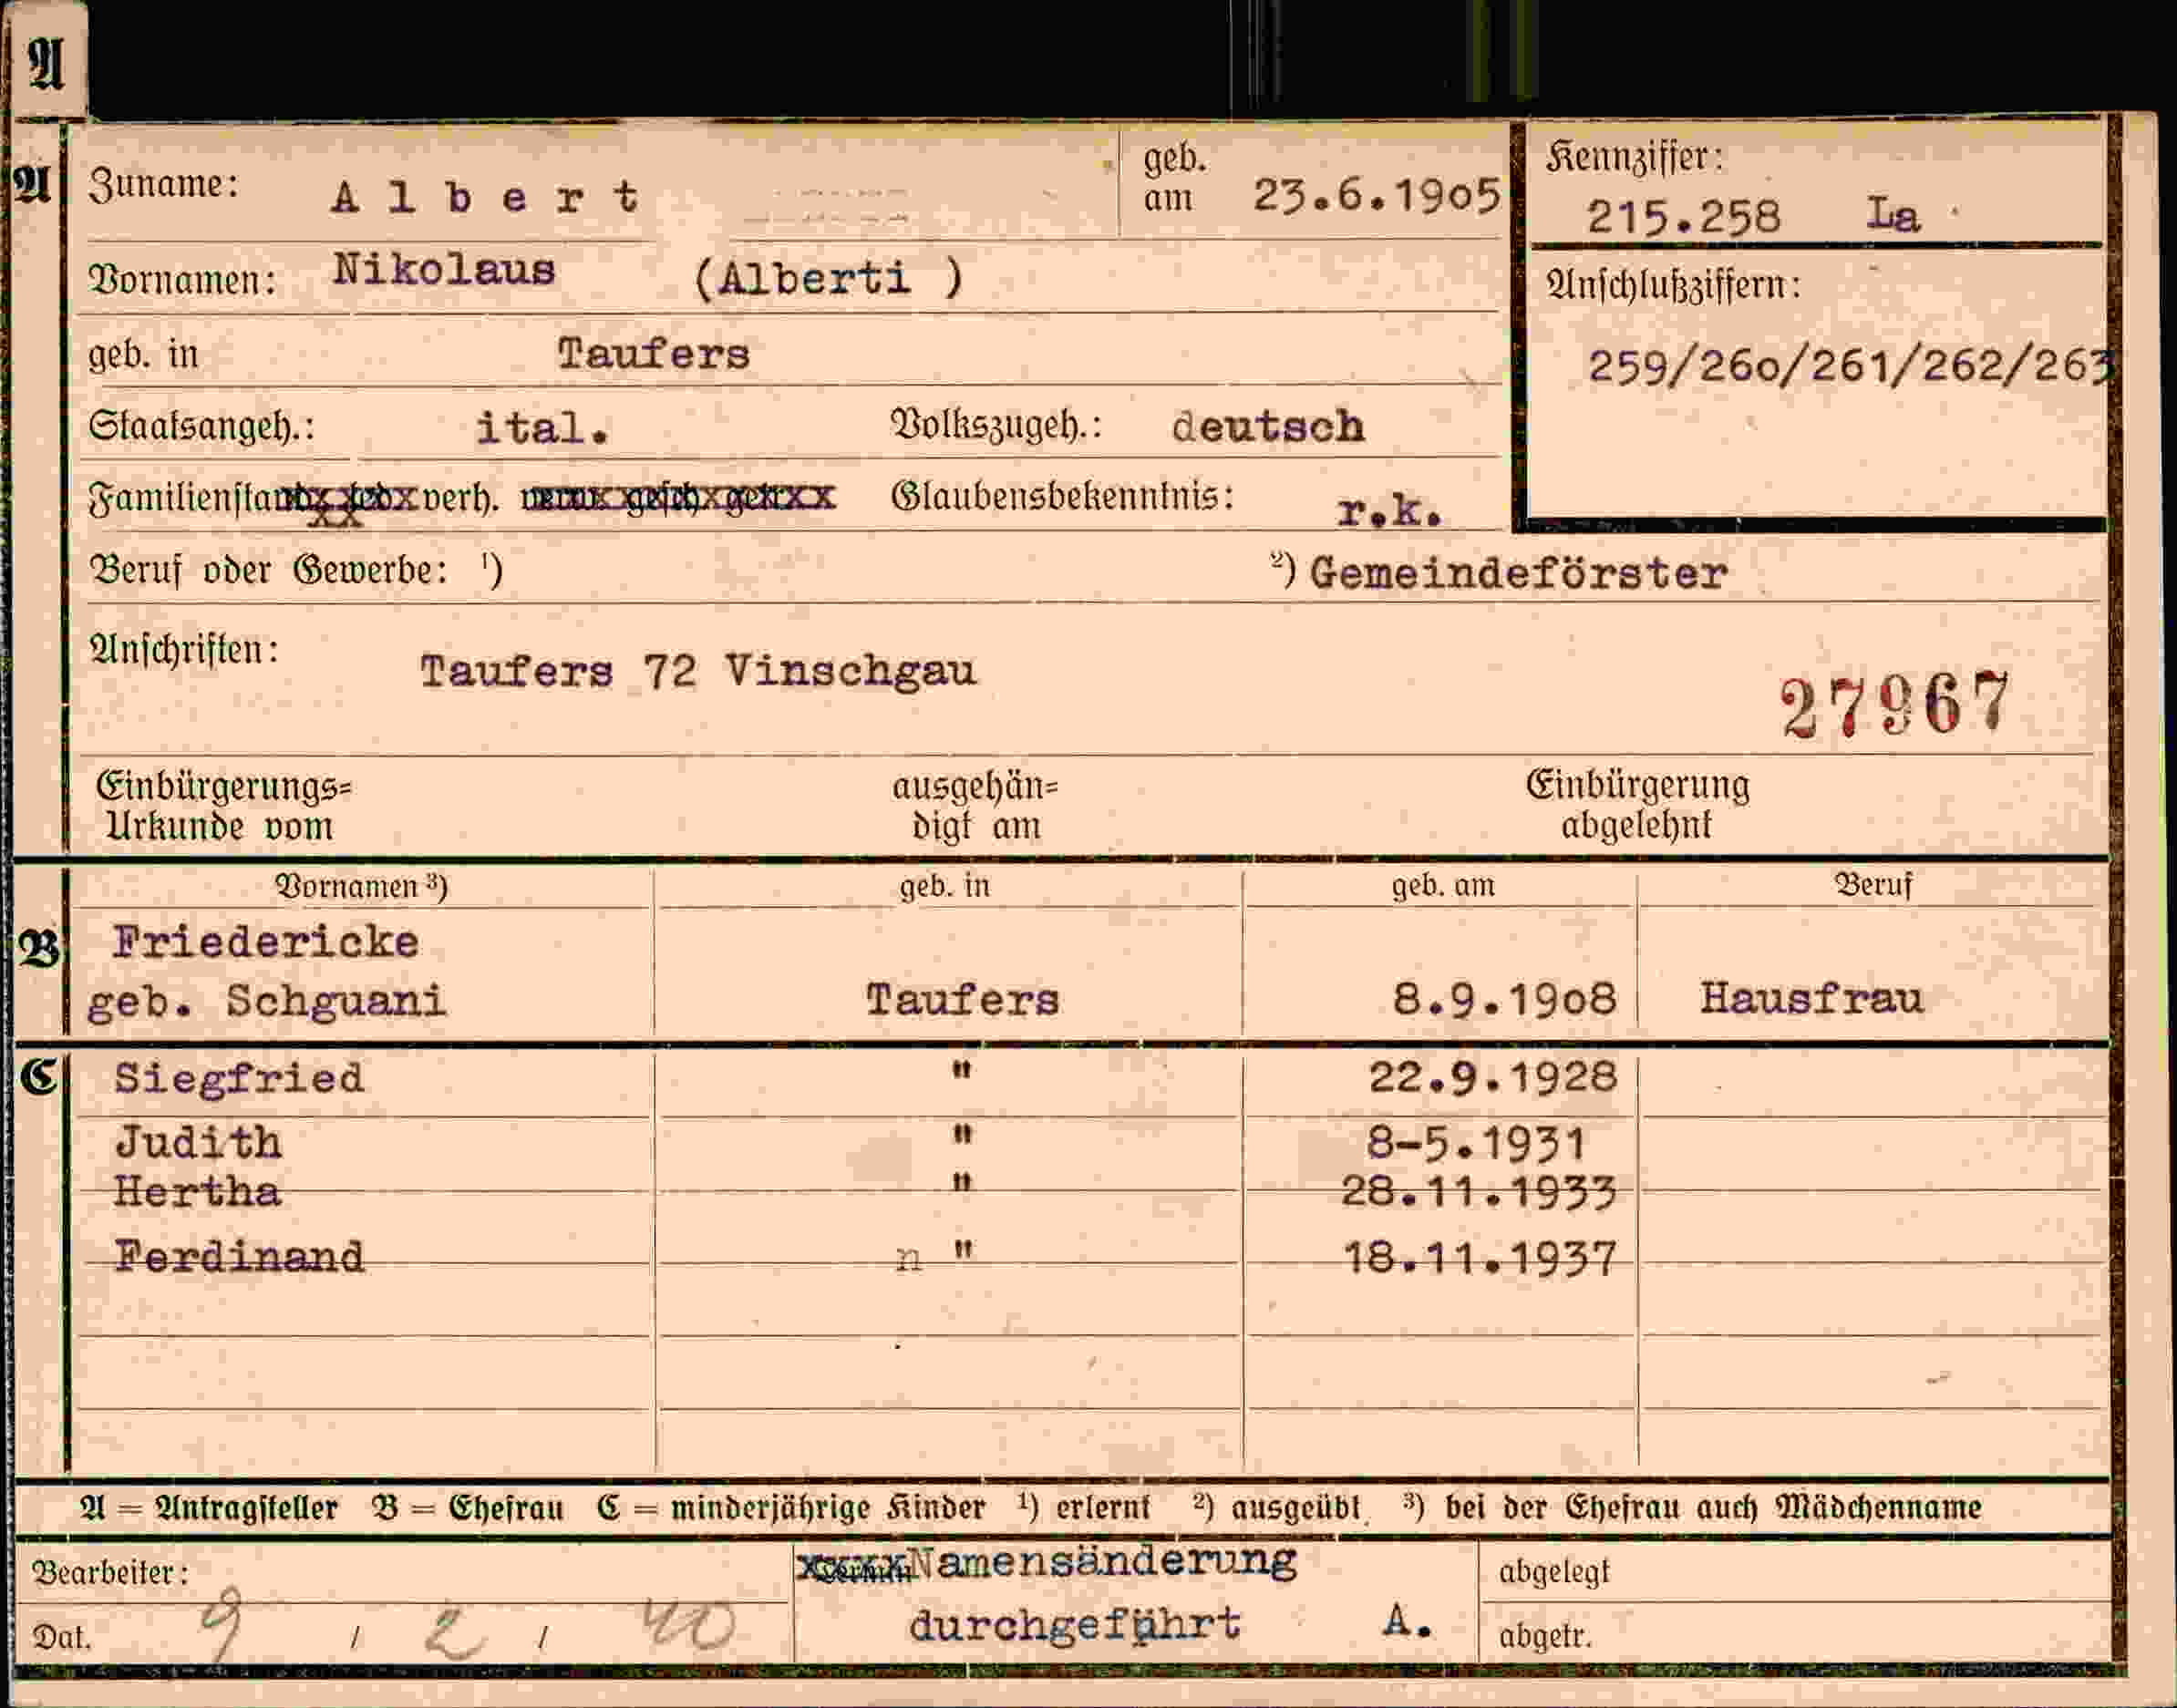 A
A Zuname: Albert geb. am 23.6.1905 Kennziffer: 215.258 La
Vornamen: Nikolaus (Alberti ) Anschlußziffern:
geb. in Taufers 259/260/261/262/263
Staatsangeh.: ital. Volkszugeh.: deutsch
Familienstand verh. Glaubensbekenntnis: r.k.
Beruf oder Gewerbe: ¹) ²) Gemeindeförster
Anschriften: Taufers 72 Vinschgau
27967
Einbürgerungs= ausgehän= Einbürgerung
Urkunde vom digt am abgelehnt
Vornamen ³) geb. in geb. am Beruf
B Friedericke
geb. Schguani Taufers 8.9.1908 Hausfrau
C Siegfried " 22.9.1928
Judith " 8-5.1931
Hertha " 28.11.1933
Ferdinand n " 18.11.1937
A = Antragsteller B = Ehefrau C = minderjährige Kinder ¹) erlernt ²) ausgeübt ³) bei der Ehefrau auch Mädchenname
Bearbeiter: Namensänderung abgelegt
Dat. 9 / 2 / 40 durchgeführt A. abgetr.